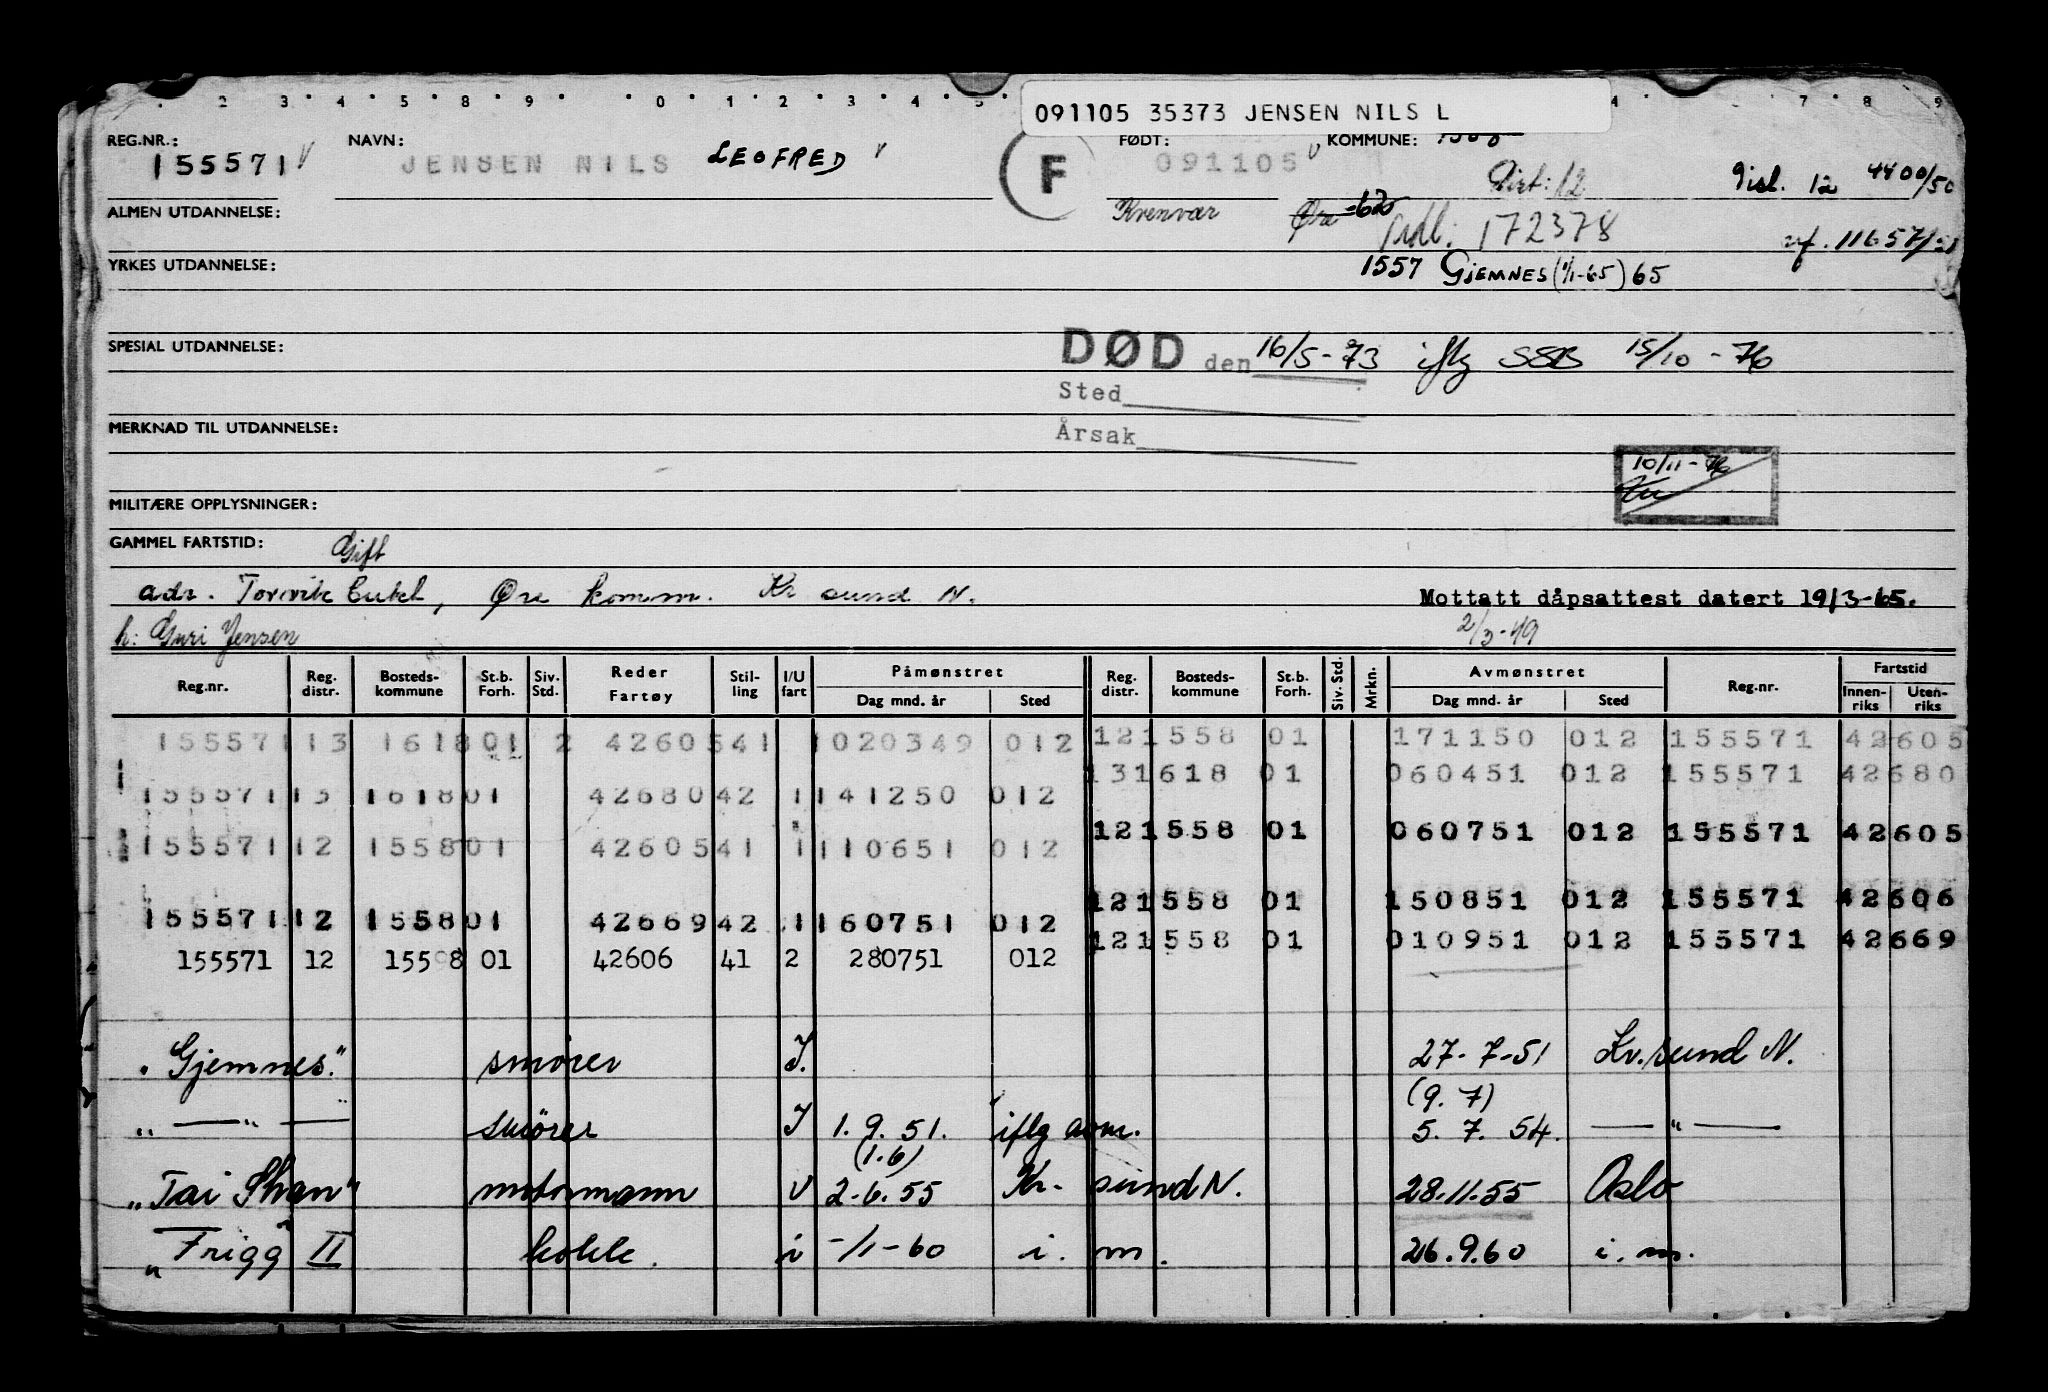 091105 35373 JENSEN NILS L
REG.NR.: NAVN: FØDT: KOMMUNE:
155571 JENSEN NILS LEOFRED F 091105
Dist: 12 Disl. 12 4400/50
ALMEN UTDANNELSE: Kvenvær Øre -62 Adl: 172378 11657/51
YRKES UTDANNELSE: 1557 GJEMNES (1/1-65) 65
SPESIAL UTDANNELSE: DØD den 16/5-73 iflg SSB 15/10-76
Sted
MERKNAD TIL UTDANNELSE: Årsak
10/11-76
MILITÆRE OPPLYSNINGER:
GAMMEL FARTSTID: Gift
adr. Torvvik Eukl, Øre komm. Kr sund N. Mottatt dåpsattest datert 19/3-65.
h: Guri Jensen 2/3-49
Reg.nr. Reg. distr. Bosteds-kommune St.b. Forh. Siv. Std. Reder Fartøy Stil-ling I/U fart Påmønstret Dag mnd. år Sted Reg. distr. Bosteds-kommune St.b. Forh. Siv. Std. Mrkn. Avmønstret Dag mnd. år Sted Reg.nr. Fartstid Innen-riks Uten-riks
155571 13 1618 01 2 42605 41 1 020349 012 12 1558 01 171150 012 155571 42605
13 1618 01 060451 012 155571 42680
155571 13 1618 01 42680 42 1 141250 012
12 1558 01 060751 012 155571 42605
155571 12 1558 01 42605 41 1 110651 012
12 1558 01 150851 012 155571 42606
155571 12 1558 01 42669 42 1 160751 012
12 1558 01 010951 012 155571 42669
155571 12 1558 01 42606 41 2 280751 012
"Gjemnes" smører I. 27-7-51 Kr.sund N.
(9.7)
" — " — smører I 1.9.51. iflg avm. 5.7.54. — " —
(1.6)
"Tai Shan" motormann U 2-6.55 Kr- sund N. 28.11.55 Oslo
"Frigg" II kokk. i -/1-60 i. m. 26.9.60 i. m.